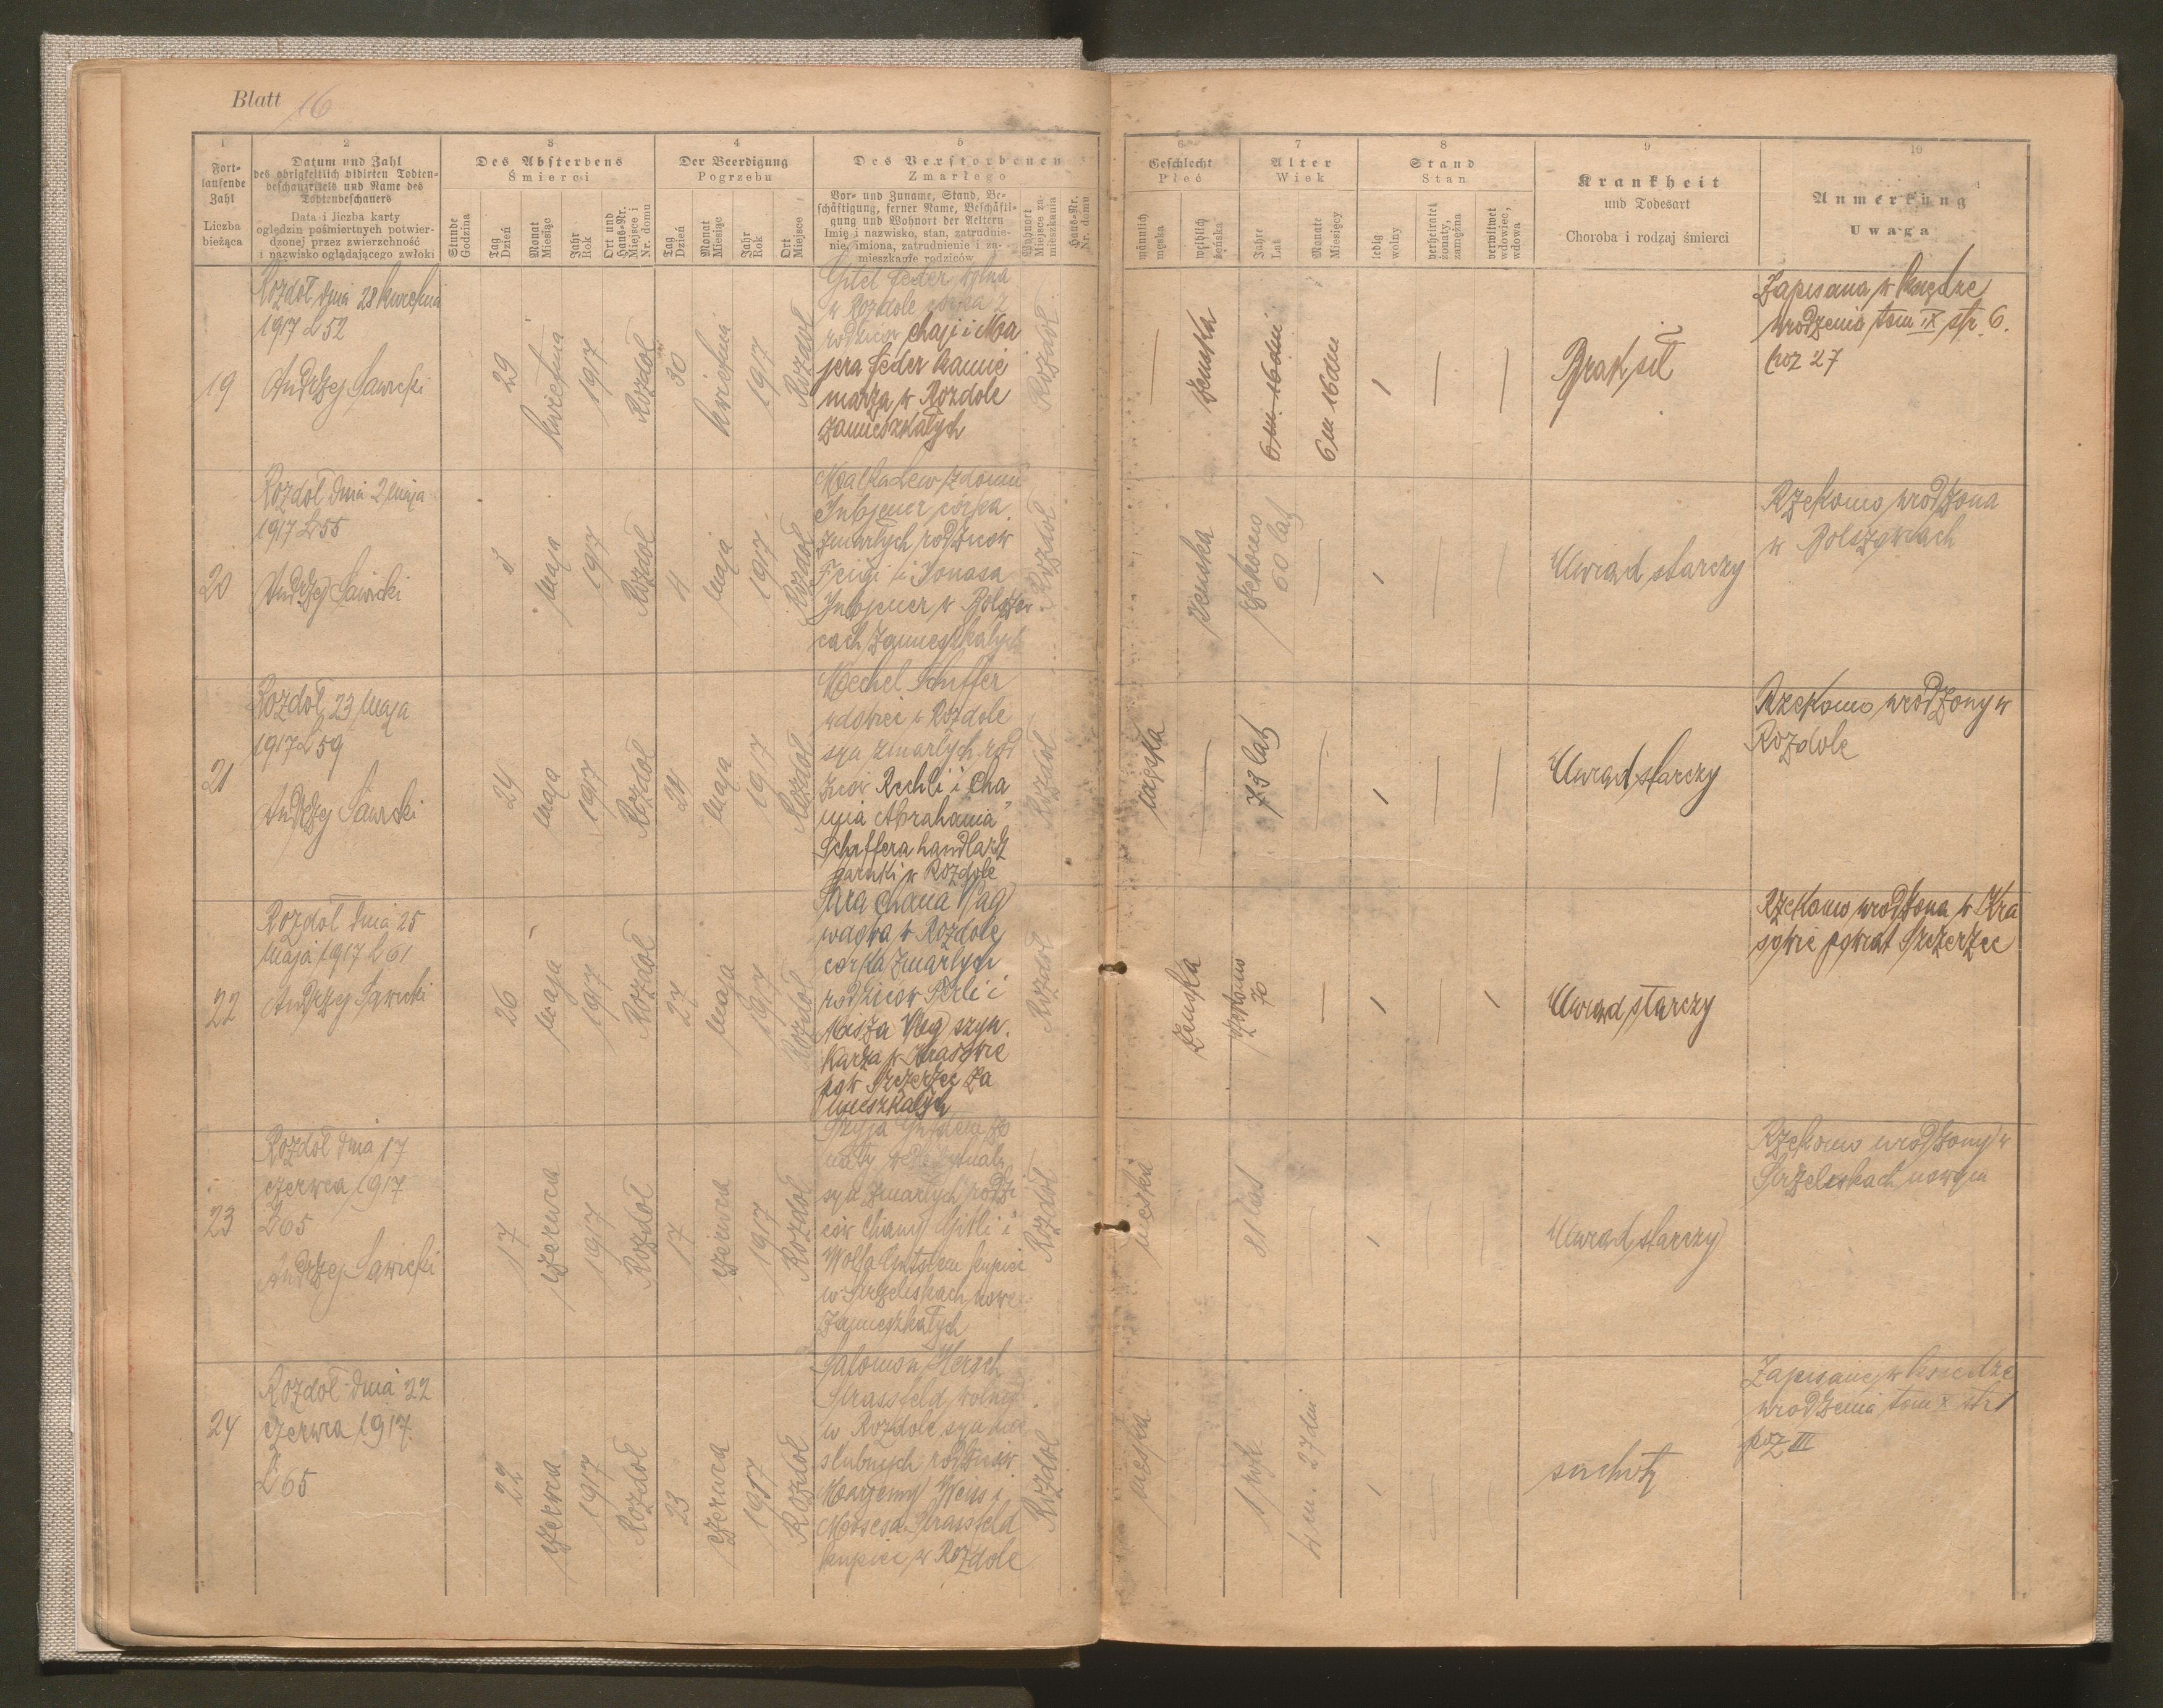 Blatt 16
1
Fort-
laufende
Zahl
Liczba
bieżąca
2
Datum und Zahl
des obrigkeitlich vidirten Todten-
beschauzettels und Name des
Todtenbeschauers
Data i liczba karty
oględzin pośmiertnych potwier-
dzonej przez zwierzchność
i nazwisko oglądającego zwłoki
3
Des Absterbens
Śmierci
Stunde
Godzina
Tag
Dzień
Monat
Miesiąc
Jahr
Rok
Ort und
Haus-Nr.
Miejsce i
Nr. domu
4
Der Beerdigung
Pogrzebu
Tag
Dzień
Monat
Miesiąc
Jahr
Rok
Ort
Miejsce
5
Des Verstorbenen
Zmarłego
Vor- und Zuname, Stand, Be-
schäftigung, ferner Name, Beschäfti-
gung und Wohnort der Aeltern
Imię i nazwisko, stan, zatrudnie-
nie, imiona, zatrudnienie i za-
mieszkanie rodziców
Wohnort
Miejsce za-
mieszkania
Haus-Nr.
Nr. domu
6
Geschlecht
Płeć
männlich
męska
weiblich
żeńska
7
Alter
Wiek
Jahre
Lat
Monate
Miesięcy
8
Stand
Stan
ledig
wolny
verheiratet
żonaty,
zamężna
verwitwet
wdowiec,
wdowa
9
Krankheit
und Todesart
Choroba i rodzaj śmierci
10
Anmerkung
Uwaga
19
Rozdół dnia 28 kwietnia
1917 L 52
Andrzej Sawicki
29
kwietnia
1917
Rozdół
30
kwietnia
1917
Rozdół
Gitel Feder wolna
w Rozdole córka z
rodziców Chaji i Ma
jera Feder kamie
niarza w Rozdole
zamieszkałych
Rozdół
—
żenska
6 m 16 dni
6 m 16 dni
1
—
—
Brak sił
Zapisana w księdze
urodzenia tom IX str. 6.
poz 27
20
Rozdół dnia 2 maja
1917 L 55
Andrzej Sawicki
3
maja
1917
Rozdół
4
maja
1917
Rozdół
Malka Lew z domu
córka
zmarłych rodziców
Feigi i Jonasa
w
cach zamieszkałych
Rozdół
żenska
rzekomo
60 lat
—
1
—
Uwiąd starczy
Rzekomo urodzona
w Bolszowcach
21
Rozdół 23 maja
1917 L 59
Andrzej Sawicki
24
maja
1917
Rozdół
24
maja
1917
Rozdół
Mechel Schffer
wdowiec w Rozdole
syn zmarłych rod
ziców Rechli i Cha
ima Abrahama
Scheffera handlarz
garnki w Rozdole
Rozdół
męska
—
73 lat
—
1
—
—
Uwiąd starczy
Rzekomo urodzony w
Rozdole
22
Rozdół dnia 25
maja 1917 L 61
Andrzej Sawicki
26
maja
1917
Rozdół
27
maja
1917
Rozdół
Sara Chana Wag
wdowa w Rozdole
córka zmarłych
rodziców Perli i
Wag szyn.
karza w Krasowie
pow Szczerzec za
mieszkałych
Rozdół
żenska
rzekomo
70
—
1
—
1
Uwiąd starczy
Rzekomo urodzona w Kra
sowie powiat Szczerzec
23
Rozdół dnia 17
czerwca 1917
L 65
Andrzej Sawicki
17
czerwca
1917
Rozdół
17
czerwca
1917
Rozdół
żo
naty
syn zmarłych rodzi
ców Chany Gitli i
Wolfa kupiec
w Strzeliskach nowe
zamieszkałych
Rozdół
męska
81 lat
—
1
—
—
Uwiąd starczy
Rzekomo urodzony w
Strzeliskach nowym
24
Rozdół dnia 22
czerwca 1917
L 65
22
czerwca
1917
Rozdół
23
czerwca
1917
Rozdół
Salomon Hersch
Strassfeld wolny
w Rozdole syn nie
ślubnych rodziców
Weiss i
Mosesa Strassfeld
kupiec w Rozdole
Rozdół
męska
1 rok
4 m. 27 dni
1
—
—
suchoty
Zapisany w księdze
urodzenia tom X str 1
poz III